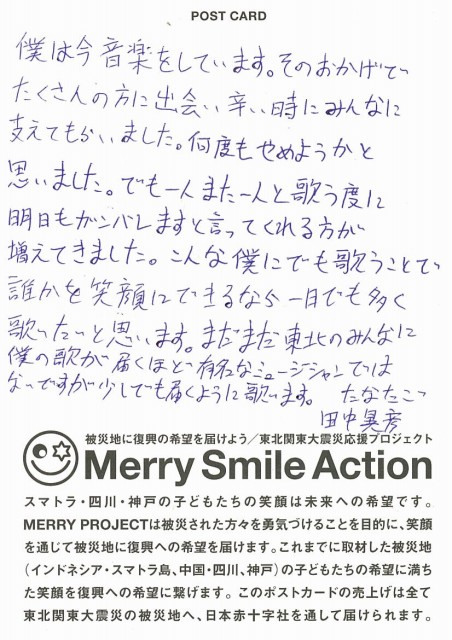 POST CARD
僕は今音楽をしています。そのおかげで
たくさんの方に出会い辛い時にみんなに
支えてもらいました。何度もやめようかと
思いました。でも一人また一人と歌う度に
明日もガンバレますと言ってくれる方が
増えてきました。こんな僕にでも歌うことで
誰かを笑顔にできるなら一日でも多く
歌いたいと思います。まだまだ東北のみんなに
僕の歌が届くほど有名なミュージシャンでは
ないですが少しでも届くように歌います。 たなたこつ
田中晃彦
被災地に復興の希望を届けよう／東北関東大震災応援プロジェクト
Merry Smile Action
スマトラ・四川・神戸の子どもたちの笑顔は未来への希望です。
MERRY PROJECTは被災された方々を勇気づけることを目的に、笑顔
を通じて被災地に復興への希望を届けます。これまでに取材した被災地
（インドネシア・スマトラ島、中国・四川、神戸）の子どもたちの希望に満ち
た笑顔を復興への希望に繋げます。このポストカードの売上げは全て
東北関東大震災の被災地へ、日本赤十字社を通して届けられます。